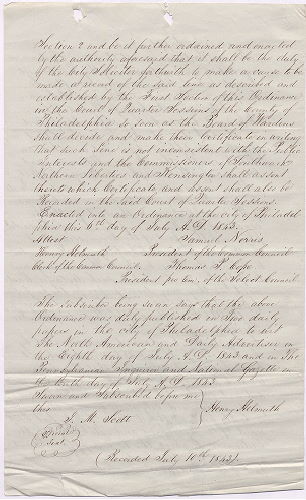 Section 2 and be it further ordained and enacted
by the authority aforesaid that it shall be the duty
of the City Solicitor forthwith to make or cause to be
made a record of the said line as described and
established by the First Section of this Ordinance
in the Court of Quarter Sessions of the County of
Philadelphia so soon as the Board of Wardens
shall decide and make their Certificate in writing
that such line is not inconsistent with the Public
Interests and the Commissioners of Southwark
Northern Liberties and Kensington shall assent
thereto which Certificate and assent shall also be
Recorded in the Said Court of Quarter Sessions.
Enacted into an Ordinance at the city of Philadel
phia this 6th day of July A.D. 1843.
Attest Samuel Norris
Henry Helmuth President of the Common Council
Clerk of the Common Council. Thomas P. Cope
President pro tem. of the Select Council
The Subscriber being sworn says that the above
Ordinance was duly published in Two daily
papers in the city of Philadelphia to wit
The North American and Daily Advertiser on
the Eighth day of July A.D. 1843 and in The
Pennsylvanian Inquirer and National Gazette on
the day of July A.D. 1843
Sworn and Subscribed before me
this Henry Helmuth
J. M. Scott
Seal
(Recorded July 10th 1843)